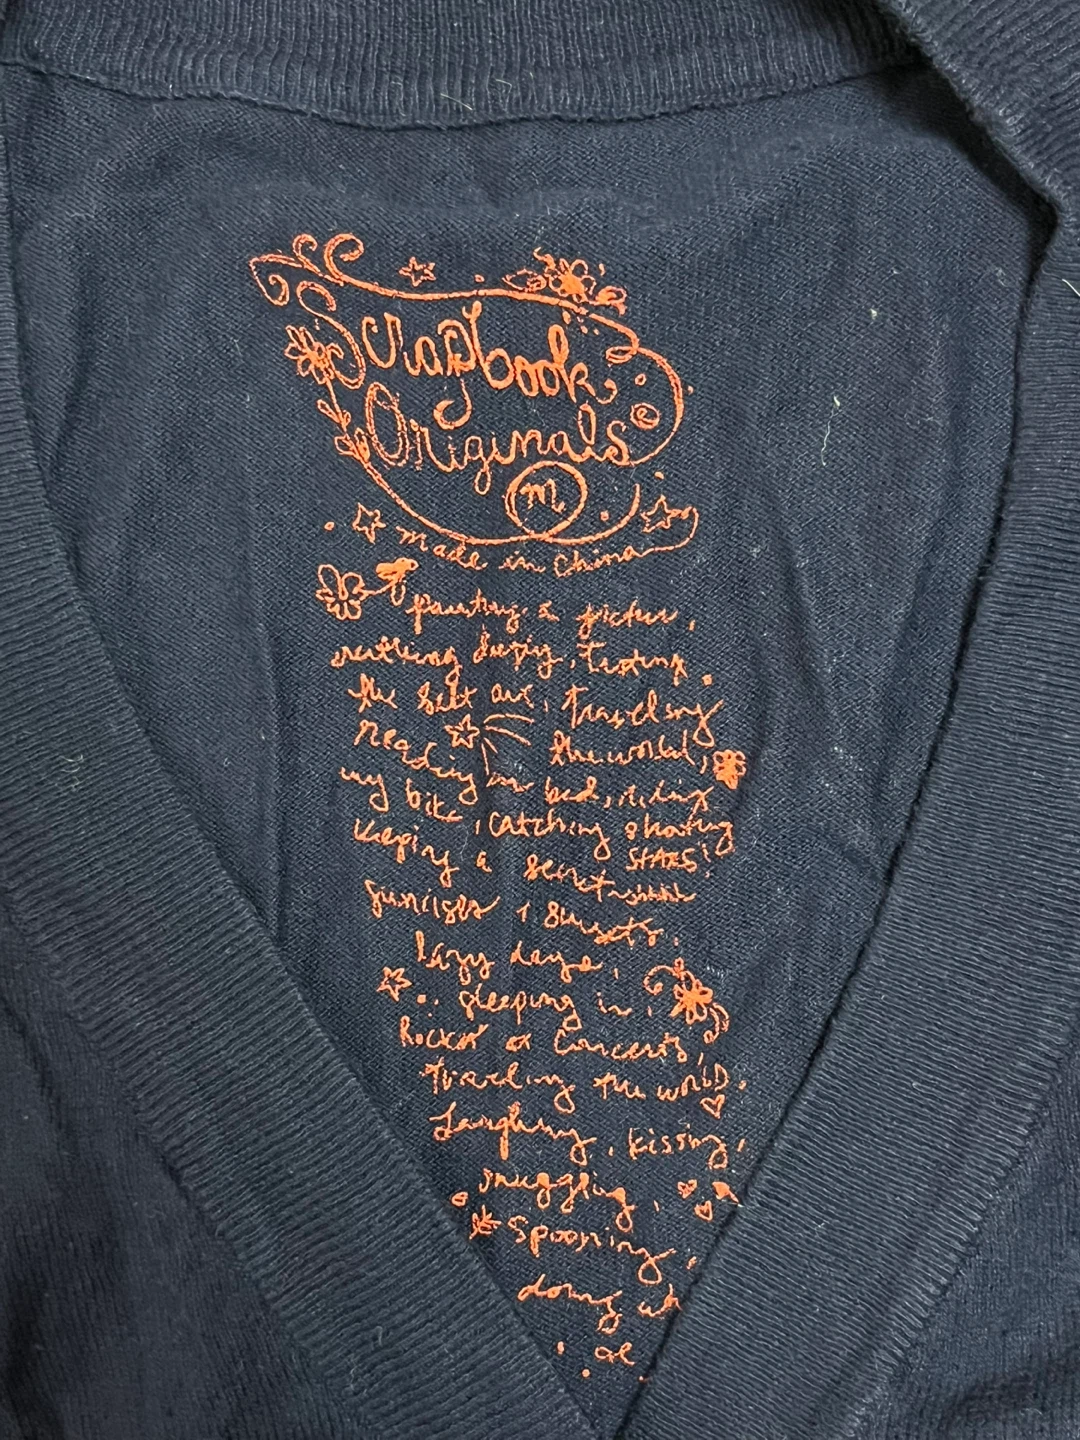 Scrapbook
Originals
m
made in China
painting a picture,
breathing deeply, tasting
the best, traveling
the world,
Reading in bed, riding
my bike, catching shooting
STARS!
keeping a secret shhhh
sunrises + sunsets,
lazy days,
sleeping in,
Rockin at Concerts,
traveling the world.
Laughing, kissing,
snuggling,
Spooning,
doing